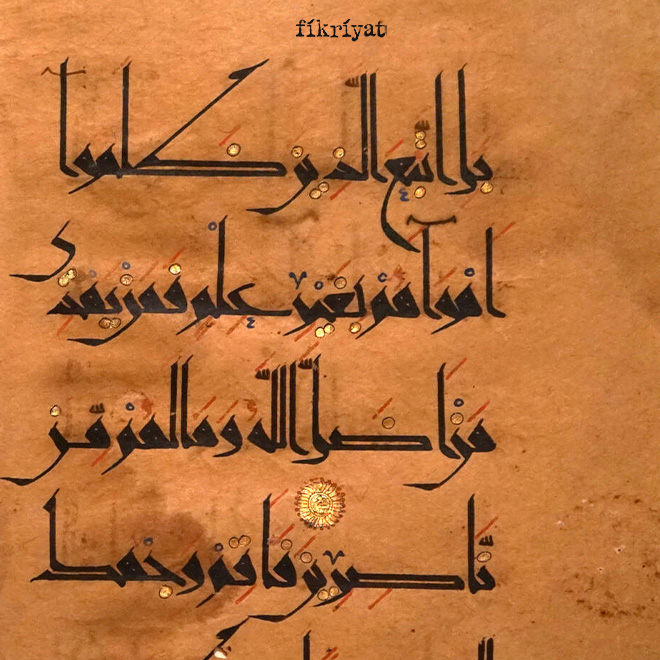 fikriyat
بَلِ اتَّبَعَ الَّذِينَ ظَلَمُوا
اَهْوَآءَهُمْ بِغَيْرِ عِلْمٍ فَمَنْ يَهْدِى
مَنْ اَضَلَّ اللّٰهُ وَمَا لَهُمْ مِنْ
نَّاصِرِينَ فَاَقِمْ وَجْهَكَ